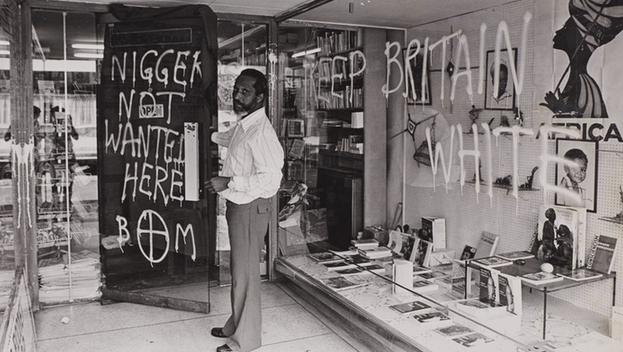 NIGGER
NOT
OPEN
WANTED
HERE
BM
KEEP BRITAIN
WHITE
AFRICA